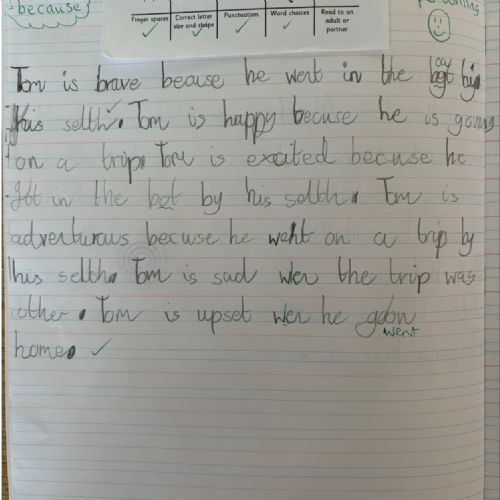 because
Finger spaces Correct letter size and shape Punctuation Word choices Read to an adult or partner
Tom is brave becuse he went in the bot by
his selth. Tom is happy becuse he is going
on a trip. Tom is excited because he
got in the bot by his selth. Tom is
adventurous becuse he weht on a trip by
his selth. Tom is sad wen the trip was
other. Tom is upset wen he goon
went
home.